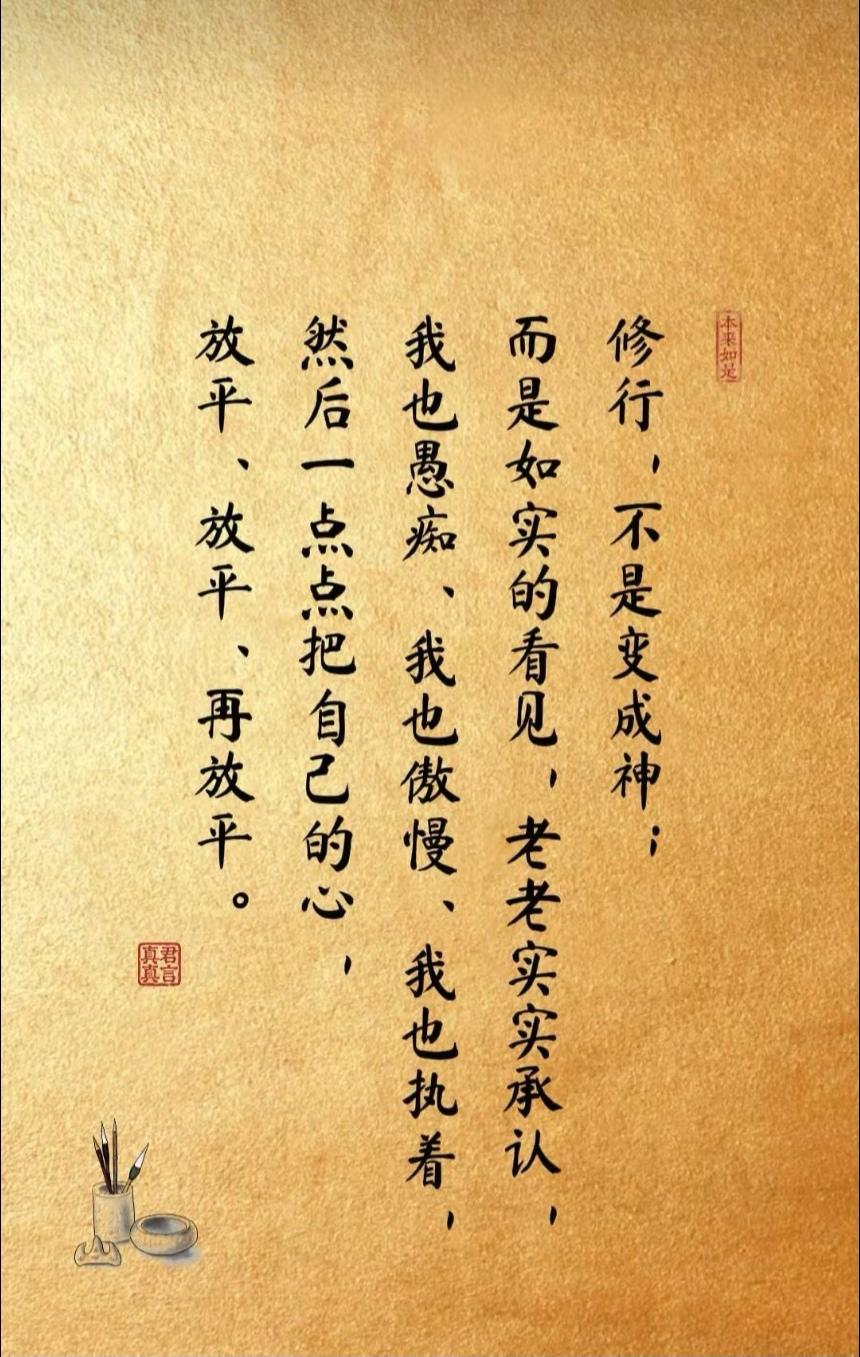 本来如是
修行，不是变成神；
而是如实的看见，老老实实承认，
我也愚痴、我也傲慢、我也执着，
然后一点点把自己的心，
放平、放平、再放平。
君言
真真